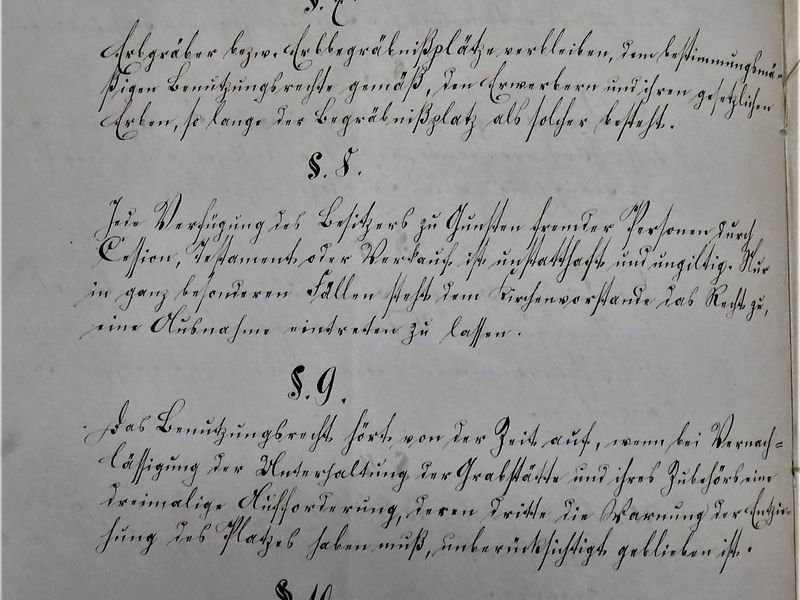 §. 7.
Erbgräber bezw. Erbbegräbnißplätze verbleiben, dem bestimmungsmä-
ßigen Benutzungsrechte gemäß, den Erwerbern und ihren gesetzlichen
Erben, so lange der Begräbnißplatz als solcher besteht.
§. 8.
Jede Verfügung des Besitzers zu Gunsten fremder Personen durch
Cession, Testament oder Verkauf ist unstatthaft und ungiltig. Nur
in ganz besonderen Fällen steht dem Kirchenvorstande das Recht zu,
eine Ausnahme eintreten zu lassen.
§. 9.
Das Benutzungsrecht hört von der Zeit auf, wenn bei Vernach=
lässigung der Unterhaltung der Grabstätte und ihres Zubehörs eine
dreimalige Aufforderung, deren dritte die Warnung der Entzie=
hung des Platzes haben muß, unberücksichtigt geblieben ist.
§. 10.